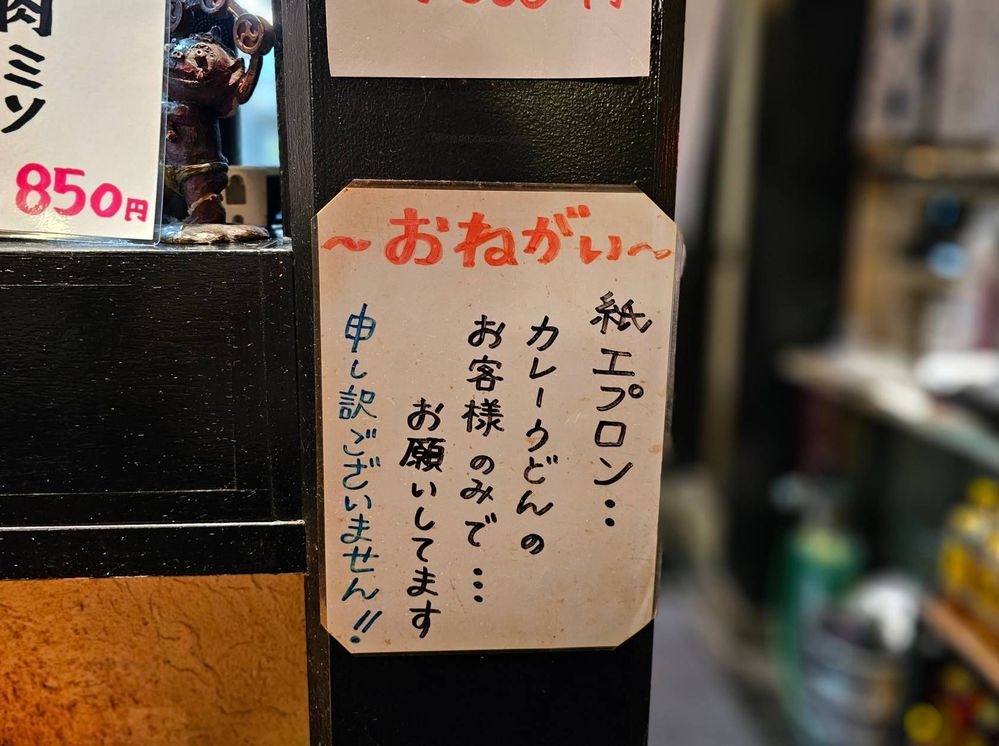 ~おねがい~
紙エプロン‥
カレーうどんの
お客様のみで…
お願いしてます
申し訳ございません!!
肉ミソ
850円
円